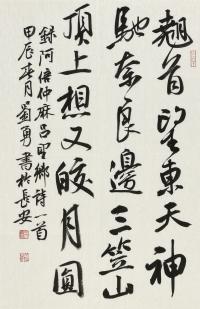 翹首望東天神
馳奈良邊三笠山
頂上想又皎月圓
録阿倍仲麻呂望鄉詩一首
甲辰春月勇書於長安